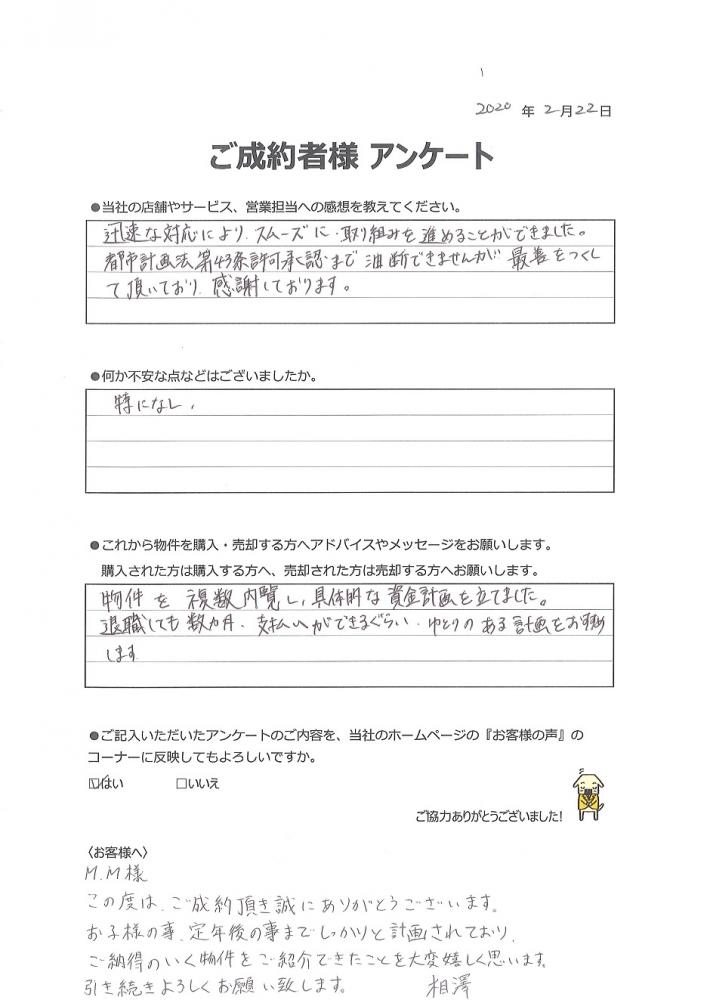 2020 年 2月22日
ご成約者様 アンケート
●当社の店舗やサービス、営業担当への感想を教えてください。
迅速な対応により、スムーズに、取り組みを進めることができました。
都市計画法第43条許可承認まで油断できませんが 最善をつくし
て頂いており、感謝しております。
●何か不安な点などはございましたか。
特になし、
●これから物件を購入・売却する方へアドバイスやメッセージをお願いします。
購入された方は購入する方へ、売却された方は売却する方へお願いします。
物件を複数内覧し、具体的な資金計画を立てました。
退職しても数カ月、支払いができるぐらい、ゆとりのある計画をお勧め
します
●ご記入いただいたアンケートのご内容を、当社のホームページの『お客様の声』の
コーナーに反映してもよろしいですか。
☑はい □いいえ
ご協力ありがとうございました!
〈お客様へ〉
M.M様
この度は、ご成約頂き誠にありがとうございます。
お子様の事、定年後の事までしっかりと計画されており、
ご納得のいく物件をご紹介できたことを大変嬉しく思います。
引き続きよろしくお願い致します。 相澤